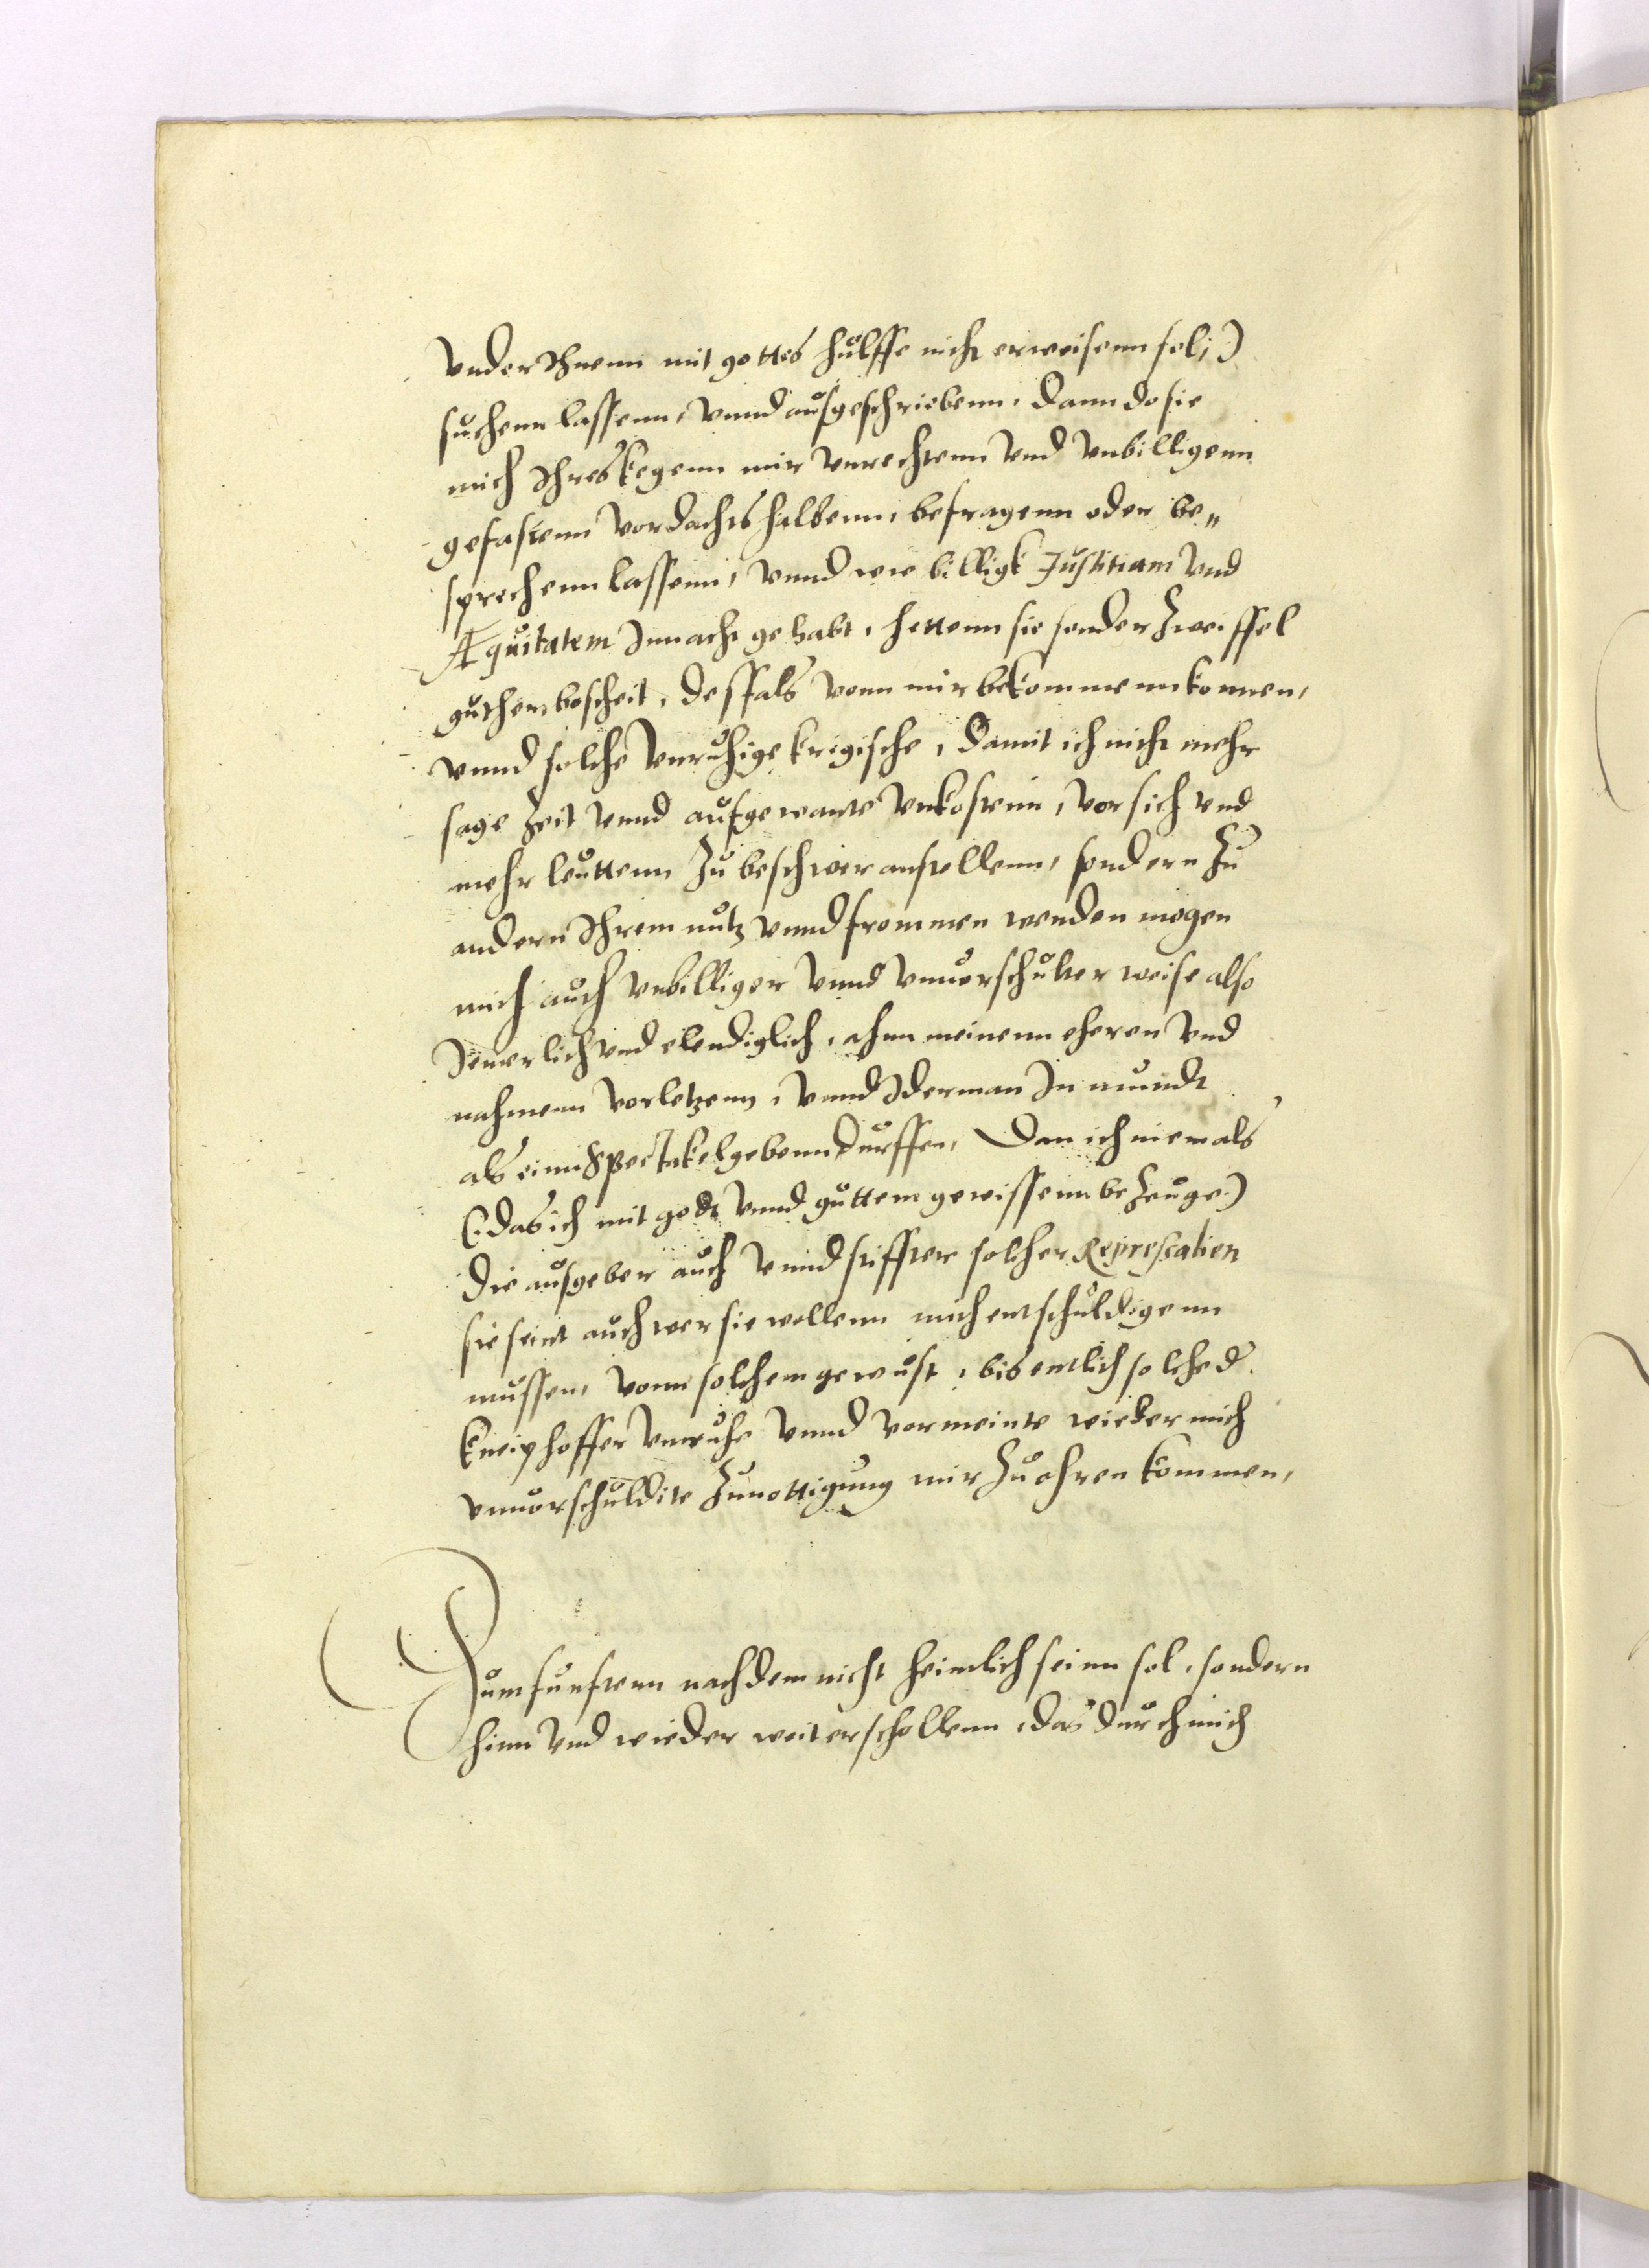 vnder Ihnenn mit gottes hulffe nicht erweisenn sol;)
suchenn lassenn, vnnd ausgeschriebenn. Dann do sie
mich Ihres kegenn mir vnrechtenn vnd vnbilligenn
gefastenn vordachts halbenn, befragenn oder be„
sprechenn lassenn, vnnd wie billigk Justitiam vnd
Æquitatem Innacht gehabt, hettenn sie sonder Zweiffel
guthenn bescheit, desfals vonn mir bekommenn konnen,
vnnd solche vnruhige krigische, damit ich nicht mehr
sage Zeit vnnd aufgewante vnkostenn, vor sich vnd
mehr leuttenn Zu beschwer anstellenn, sondern Zu
andern Ihrem nutz vnnd frommen wenden mogen
mich auch vnbilliger vnnd vnuorschulter weise also
Jemerlich vnd elendiglich, ahnn meinenn eheren vnd
nahmenn vorletzenn, vnnd Iderman In mundt
als einn Spectakel gebenn durffen, Dan ich niemals
(:das ich mit godt vnnd guttem gewissenn beZeuge:)
die ausgeber auch vnnd stiffter solcher Represalien
sie seint auch wer sie wollenn mich entschuldigenn
mussen, vonn solchem gewust, bis entlich solche d.
kneiphoffer vnruhe vnnd vormeinte wieder mich
vnuorschuldite Zunottigung mir Zu ohren kommen,
Zum funftenn nach dem nicht heimlich seinn sol, sondern
hinn vnd wieder weit erschollenn, das durch mich